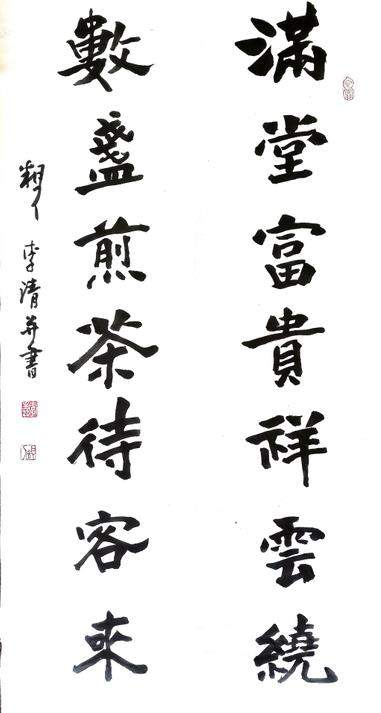 滿堂富貴祥雲繞
數盞煎茶待客來
李清并書